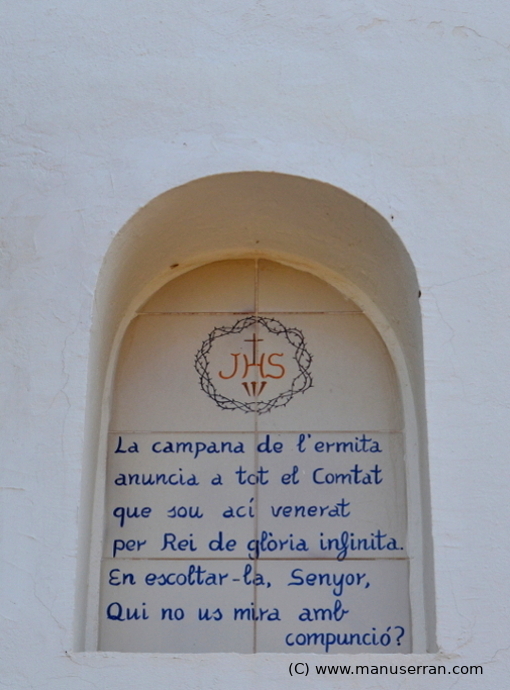 JHS
La campana de l'ermita
anuncia a tot el Comtat
que sou ací venerat
per Rei de glòria infinita.
En escoltar-la, Senyor,
Qui no us mira amb
compunció?
(C) www.manuserran.com